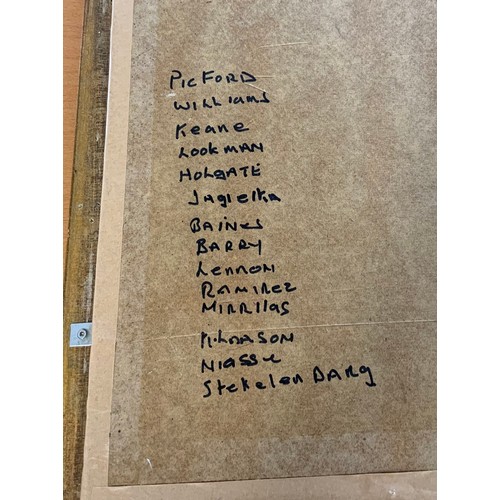 PicFORD
WILLIAMS
Keane
LOOKMAN
HOLGATE
Jagielka
BAINES
BARRY
LENNON
RAMIREZ
MIRRllas
NIASSE
Stekelen BARg